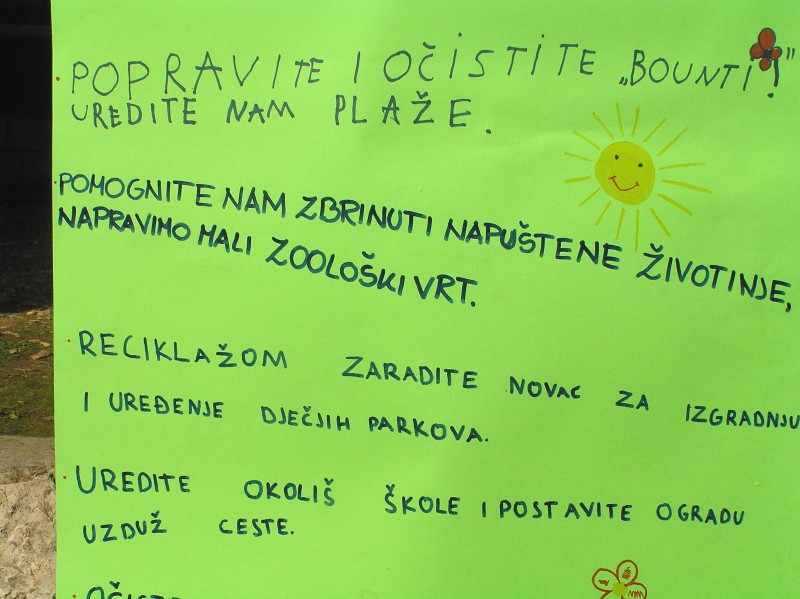 POPRAVITE I OČISTITE „BOUNTI!”
UREDITE NAM PLAŽE.
POMOGNITE NAM ZBRINUTI NAPUŠTENE ŽIVOTINJE,
NAPRAVIMO MALI ZOOLOŠKI VRT.
RECIKLAŽOM ZARADITE NOVAC ZA IZGRADNJU
I UREĐENJE DJEČJIH PARKOVA.
UREDITE OKOLIŠ ŠKOLE I POSTAVITE OGRADU
UZDUŽ CESTE.